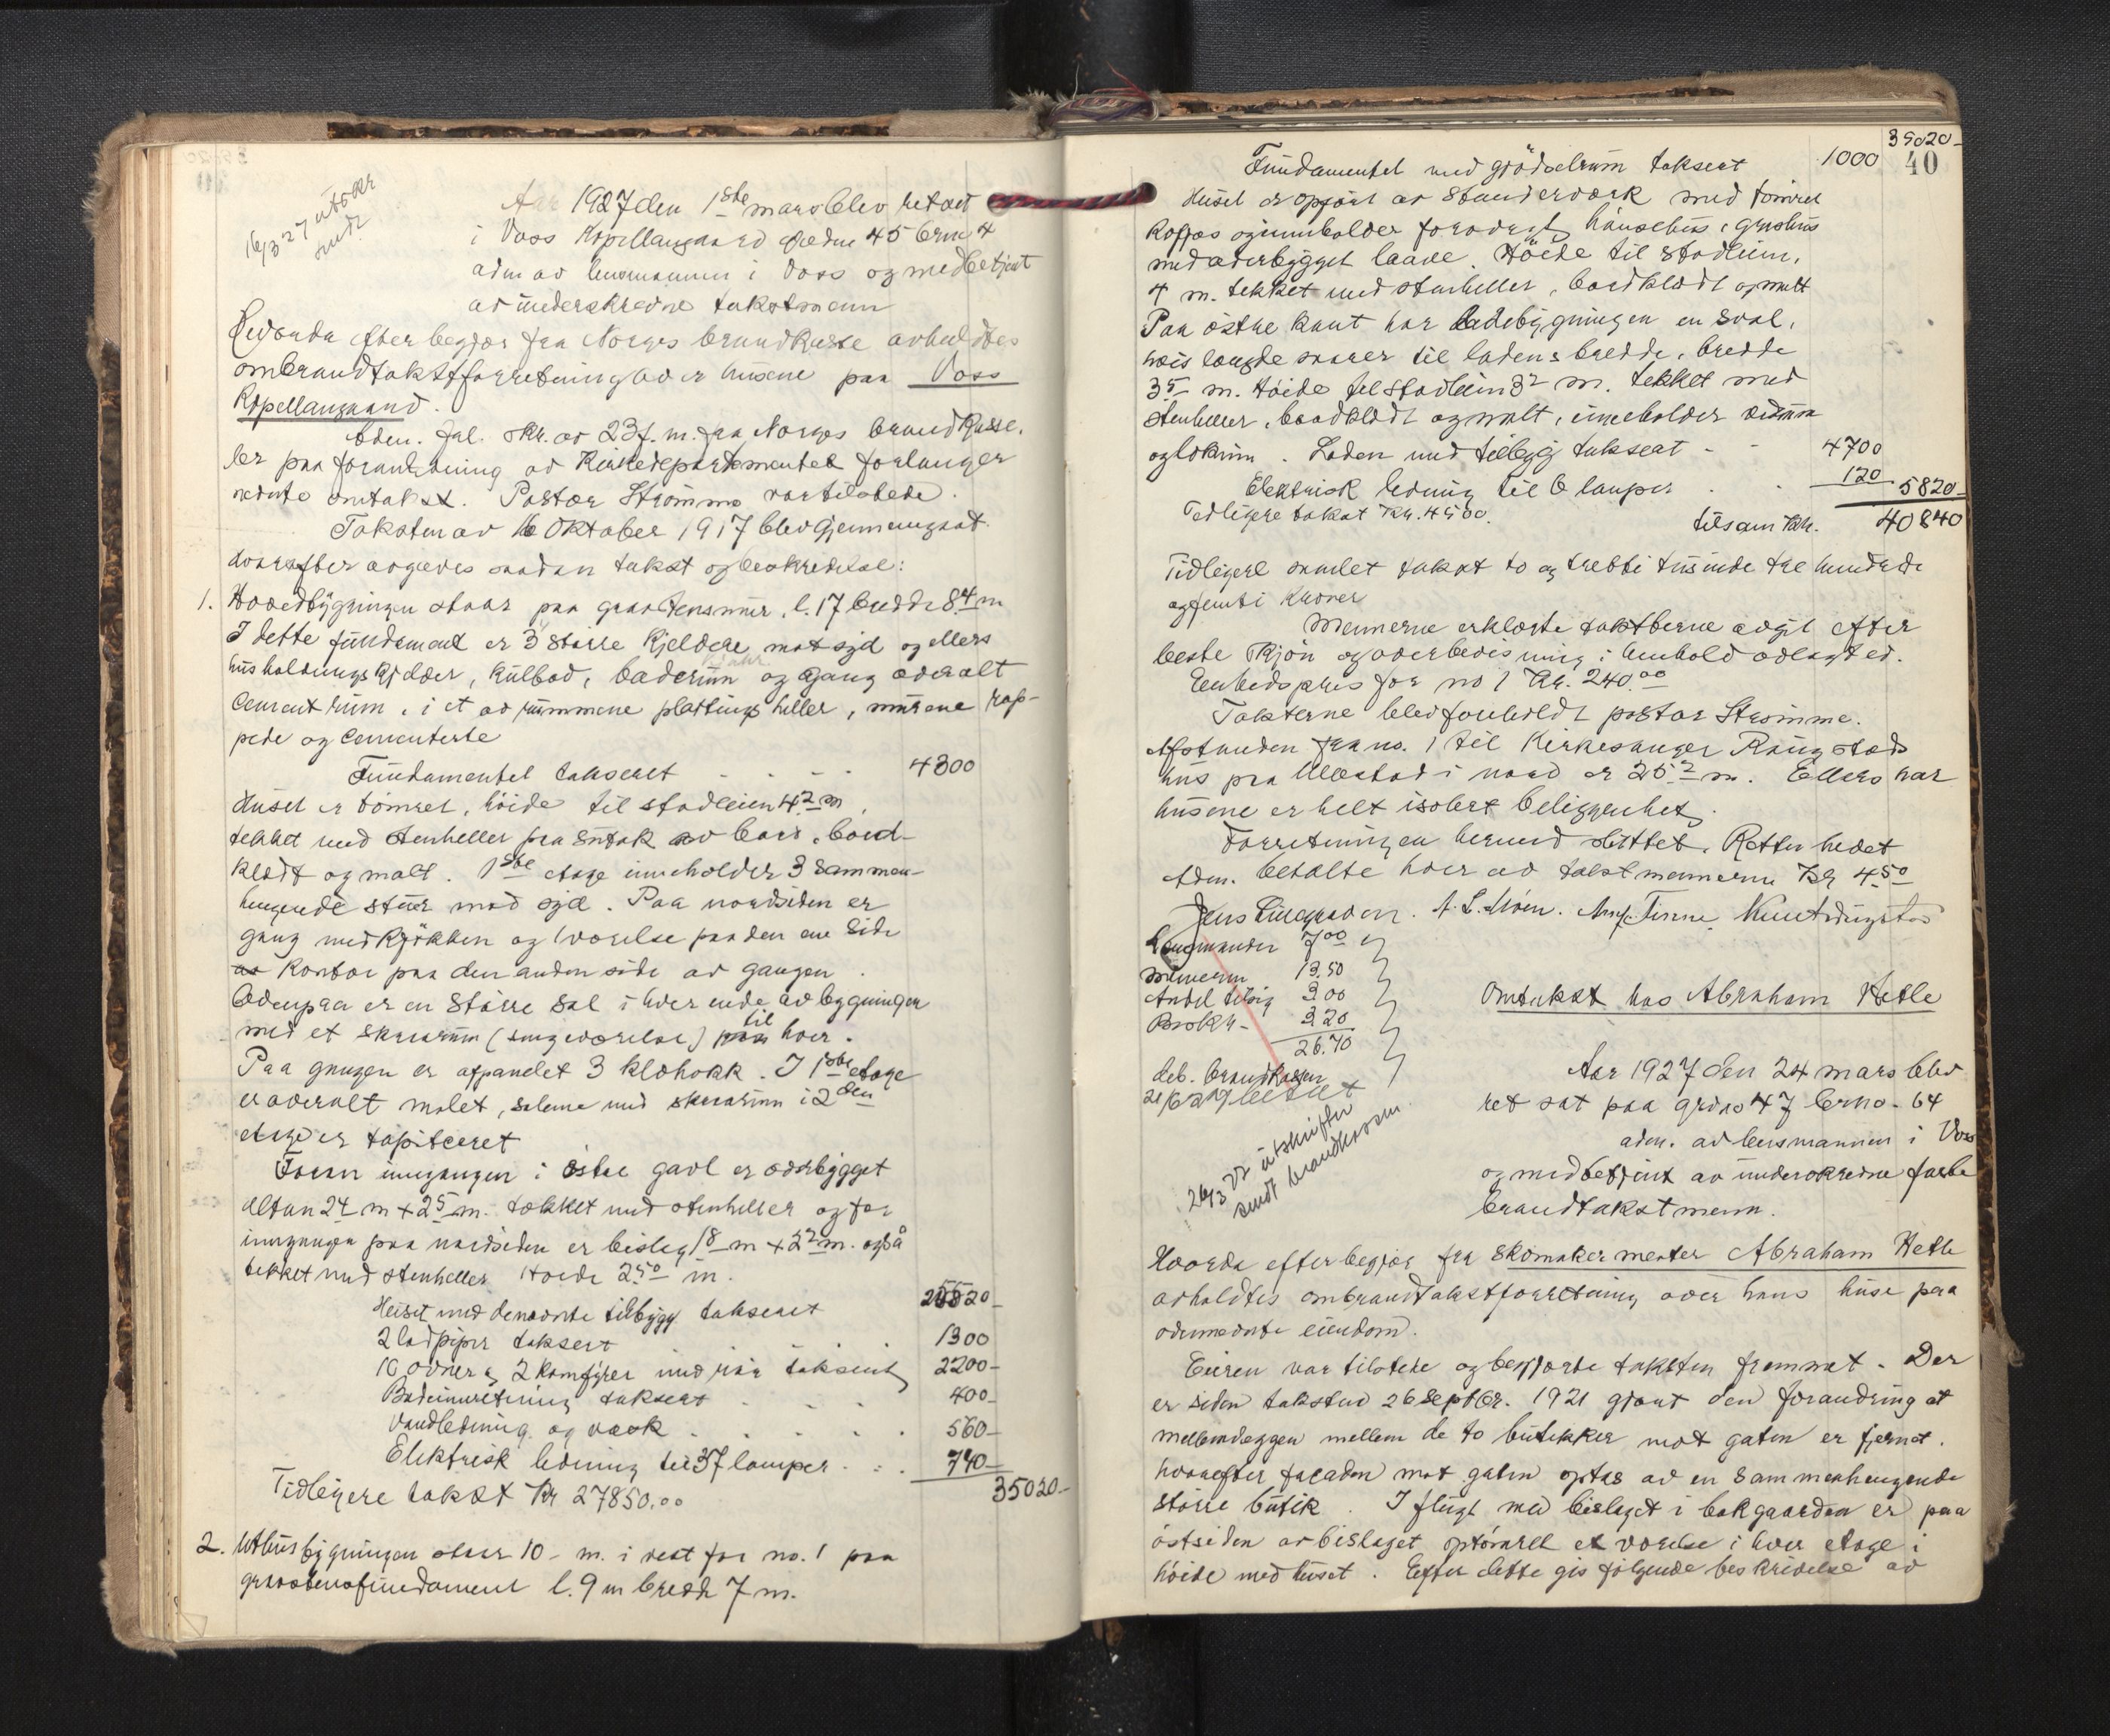 16/3 27 utskr
sendt
Aar 1927 den 1ste mars blev ret sat
i Voss Kapellangaard gardsno 45 brno 4
adm av lensmannen i Voss og medbetjent
av underskrevne takstmenn
Hvorda efter begjær fra Norges brandkasse avholdtes
ombrandtakstforretning over husene paa Voss
Kapellangaard.
Adm. frl. skr. av 23 f. m. fra Norges brandkasse,
der paa foranledning av Kirkedepartementet forlanger
nævnte omtakst. Pastor Strømme var tilstede.
Taksten av 16 Oktober 1917 blev gjennemgaat.
hvorefter avgives saadan takst og beskrivelse:
1. Hovedbygningen staar paa graastensmur, l. 17 bredde 8.4 m
I dette fundament er 3 større kjeldere mot syd og ellers
husholdningskjelder, kulbod, baderum og gang overalt
Cement rum, i et av rummene plattings heller, murene rap-
pede og Cementerte
Fundamentet taksert - - - - 4300
Huset er tømret, høide til stadleien 4.2 m,
tekket med stenheller paa sutak av bord, bord-
klædt og malt. 1ste etage inneholder 3 sammen-
hengende stuer mod syd. Paa nordsiden er
gang med kjøkken og 1 værelse paa den ene side
as kontor paa den anden side av gangen.
Ovenpaa er en større sal i hver ende av bygningen
med et skraarum (sengeværelse) paa til hver.
Paa gangen er afpanelet 3 kløhokk. I 1ste etage
er overalt malet, salene med skraarum i 2den
etage er tapitceret
Foran inngangen i østre gavl er overbygget
altan 24 m + 25 m. tækket med stenheller og for
inngangen paa nordsiden er bislag 18 m + 22 m. også
tekket med stenheller Høide 2.50 m.
Huset med denævnte tilbygg taksert 25520-
2 ladpiper taksert 1300
10 ovner og 2 komfyrer med rør taksert 2200-
Badeinnretning taksert 400-
Vandledning og vask 560-
Elektrisk ledning til 37 lamper 740-
Tidligere takst Kr 27850.00 35020-
2. Uthusbygningen staar 10 - m. i vest for no. 1 paa
graastensfundament l. 9 m bredde 7 m.
35020-
40
Fundamentet med gjødselrum taksert 1000
Huset er opført av standerværk med tømret
med overbygget laave. Høide til stadleien,
4 m. tekket med stenheller, bordklædt og malt
Paa østre kant har ladebygningen en sval,
hvis længde svarer til ladens bredde, bredde
35 m. Høide til stadleien 32 m. tekket med
stenheller, bordklædt og malt, inneholder vedrum
og lokrum. Laden med tilbygg taksert - - 4700
Elektrisk ledning til 6 lamper 120 5820-
Tidligere takst Kr. 4500. tilsam Kr. 40840
Tidligere samlet takst to og tretti tusinde tre hundrede
og femti kroner
Mennerne erklærte takstene avgit efter
beste skjøn og overbevisning i henhold avlagt ed.
Eenhedspris for no 1 Kr. 240.00
Taksterne blev foreholdt pastor Strømme.
Afstanden fra no. 1 til Kirkesanger Ringstads
hus paa Ullestad i nord er 25.2 m. Ellers har
husene er helt isolert beliggenhet.
Forretningen hermed sluttet. Retten hevet
Adm. betalte hver av takstmennerne Kr 4.50
Jens Lindgraven. A. L. Moen. Anf. Finne, Knut Ringstad
Lensmanden 7.00
Mennerne 13.50
Andel tilsig 3.00
Protokr - 3.20
26.70
deb. brandkassen
21/6 27 betalt
26/3 27 utskrifter
sendt brandkassen.
Omtakst hos Abraham Hetle
Aar 1927 den 24 mars blev
ret sat paa grdsno 47 brno. 64
adm. av lensmannen i Voss
og medbetjent av underskrevne faste
brandtakstmenn.
Hvorda efter begjær fra skomakermester Abraham Hetle
avholdtes ombrandtakstforretning over hans huse paa
ovennævnte eiendom.
Eieren var tilstede og begjærte taksten fremmet. Der
er siden taksten 26 septbr. 1921 gjort den forandring at
mellemveggen mellem de to butikker mot gaten er fjernet.
hvorefter facaden mot gaten optas av en sammenhengende
større butik. I flugt med bislaget i bakgaarden er paa
østsiden av bislaget optømrett et værelse i hver etage i
høide med huset. Efter dette gis følgende beskrivelse av